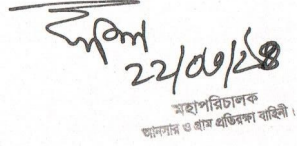 22/0৬/২৪
মহাপরিচালক
আনসার ও গ্রাম প্রতিরক্ষা বাহিনী।